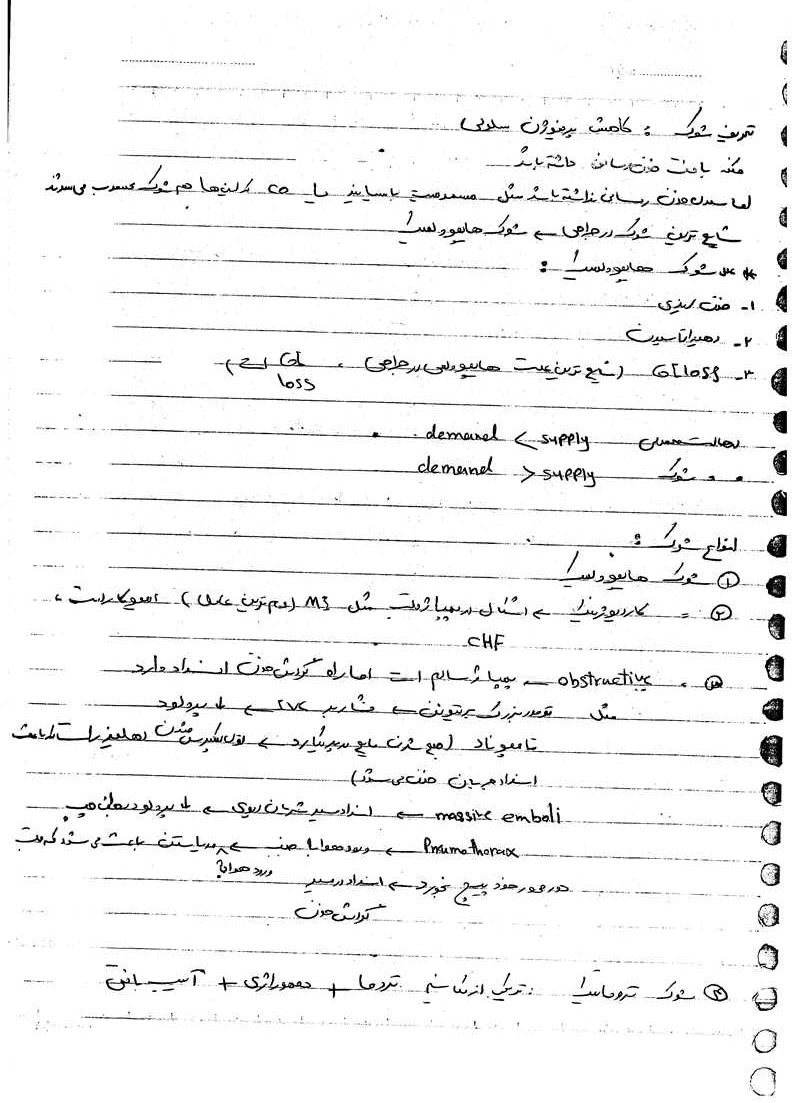 تعریف شوک : کاهش پرفیوژن سلولی
ممکنه بافت خونرسانی داشته باشد
اما سلول خون رسانی نداشته باشد مثل مسمومیت با سیانید یا CO که اینها هم شوک محسوب می شوند
شایع ترین شوک در جراحی ← شوک هایپوولمیک
** علل شوک هایپوولمیک :
۱- خونریزی
۲- دهیدراتاسیون
۳- GI loss (شایع ترین علت هایپوولمی در جراحی، GI loss است)
در حالت معمولی demand < supply
" " شوک demand > supply
انواع شوک :
① شوک هایپوولمیک
② = کاردیوژنیک ← اشکال در پمپاژ قلب مثل MI (مهم ترین عامل) میوکاردیت ،
CHF
③ " obstructive ← پمپاژ سالم است اما راه گردش خون انسداد دارد
مثل تومور بزرگ ← فشار به IVC ← ↓ پرولود
تامپوناد (جمع شدن مایع در پریکارد ← کولاپس دهلیز راست که باعث
انسداد جریان خون می شود)
massive emboli ← انسداد مسیر شریان ریوی ← ↓ پرولود بطن چپ
Pnumothorax ← ورود هوا به جنب ← مدیاستن باعث می شود که قلب
ورود هوا
دور محور خود پیچ بخورد ← انسداد در مسیر
گردش خون
④ شوک تروماتیک : ترکیبی از تروما + هموراژی + آسیب بافتی